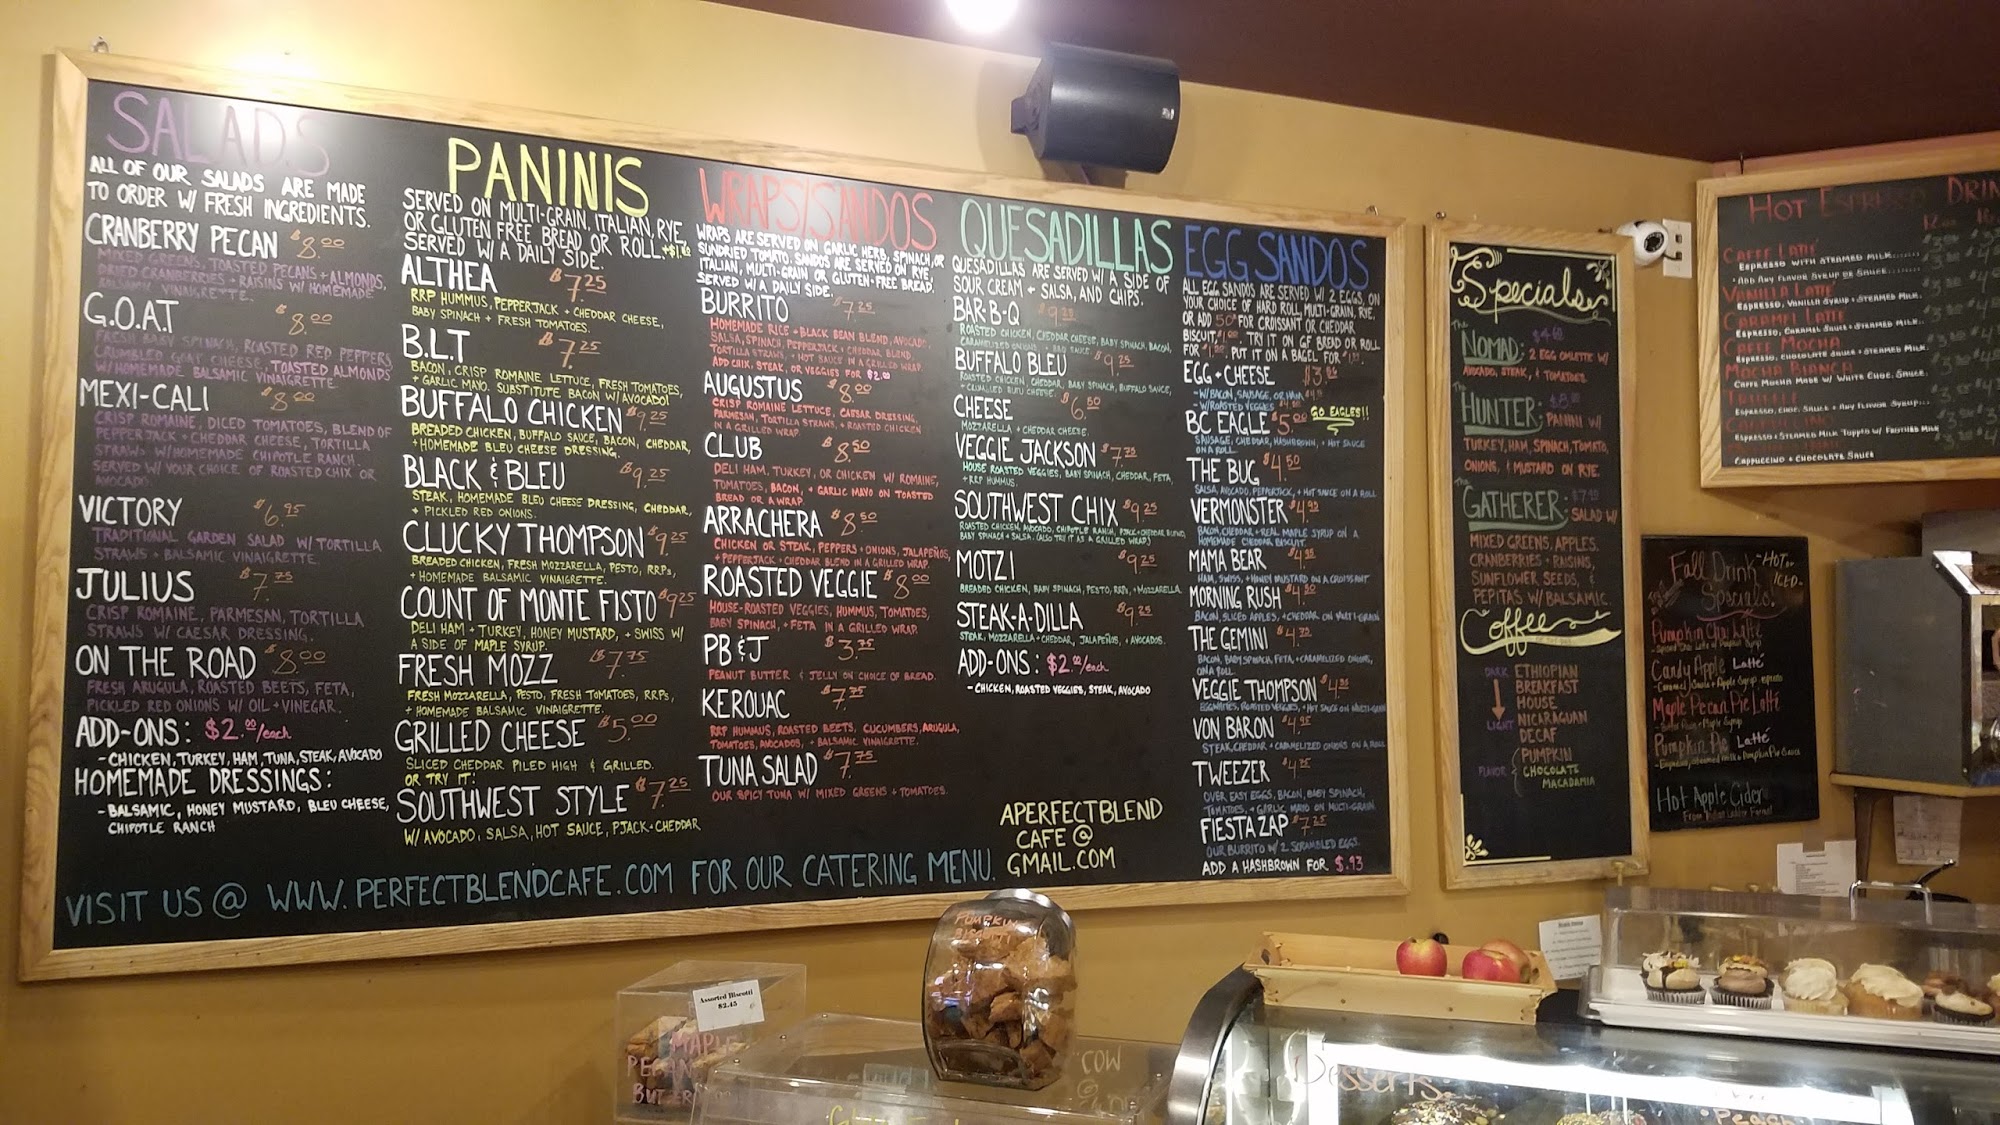 SALADS
ALL OF OUR SALADS ARE MADE
TO ORDER W/ FRESH INGREDIENTS.
CRANBERRY PECAN $8.00
MIXED GREENS, TOASTED PECANS + ALMONDS,
DRIED CRANBERRIES + RAISINS W/ HOMEMADE
BALSAMIC VINAIGRETTE.
G.O.A.T $8.00
FRESH BABY SPINACH, ROASTED RED PEPPERS
CRUMBLED GOAT CHEESE, TOASTED ALMONDS
W/ HOMEMADE BALSAMIC VINAIGRETTE
MEXI-CALI $8.00
CRISP ROMAINE, DICED TOMATOES, BLEND OF
PEPPERJACK + CHEDDAR CHEESE, TORTILLA
STRAWS W/ HOMEMADE CHIPOTLE RANCH.
SERVED W/ YOUR CHOICE OF ROASTED CHIX OR
AVOCADO.
VICTORY $6.95
TRADITIONAL GARDEN SALAD W/ TORTILLA
STRAWS + BALSAMIC VINAIGRETTE.
JULIUS $7.75
CRISP ROMAINE, PARMESAN, TORTILLA
STRAWS W/ CAESAR DRESSING.
ON THE ROAD $8.00
FRESH ARUGULA, ROASTED BEETS, FETA,
PICKLED RED ONIONS W/ OIL + VINEGAR.
ADD-ONS: $2.00/each
- CHICKEN, TURKEY, HAM, TUNA, STEAK, AVOCADO
HOMEMADE DRESSINGS:
- BALSAMIC, HONEY MUSTARD, BLEU CHEESE,
CHIPOTLE RANCH
PANINIS
SERVED ON MULTI-GRAIN, ITALIAN, RYE,
OR GLUTEN FREE BREAD OR ROLL +$1.60
SERVED W/ A DAILY SIDE.
ALTHEA $7.25
RRP HUMMUS, PEPPERJACK + CHEDDAR CHEESE,
BABY SPINACH + FRESH TOMATOES.
B.L.T $7.25
BACON, CRISP ROMAINE LETTUCE, FRESH TOMATOES,
+ GARLIC MAYO. SUBSTITUTE BACON W/ AVOCADO!
BUFFALO CHICKEN $9.25
BREADED CHICKEN, BUFFALO SAUCE, BACON, CHEDDAR,
+ HOMEMADE BLEU CHEESE DRESSING.
BLACK & BLEU $9.25
STEAK, HOMEMADE BLEU CHEESE DRESSING, CHEDDAR,
+ PICKLED RED ONIONS.
CLUCKY THOMPSON $9.25
BREADED CHICKEN, FRESH MOZZARELLA, PESTO, RRPs,
+ HOMEMADE BALSAMIC VINAIGRETTE.
COUNT OF MONTE FISTO $9.25
DELI HAM + TURKEY, HONEY MUSTARD, + SWISS W/
A SIDE OF MAPLE SYRUP.
FRESH MOZZ $7.75
FRESH MOZZARELLA, PESTO, FRESH TOMATOES, RRPs,
+ HOMEMADE BALSAMIC VINAIGRETTE.
GRILLED CHEESE $5.00
SLICED CHEDDAR PILED HIGH & GRILLED.
OR TRY IT:
SOUTHWEST STYLE $7.25
W/ AVOCADO, SALSA, HOT SAUCE, PJACK + CHEDDAR
WRAPS/SANDOS
WRAPS ARE SERVED ON GARLIC HERB, SPINACH, OR
SUNDRIED TOMATO. SANDOS ARE SERVED ON RYE,
ITALIAN, MULTI-GRAIN OR GLUTEN-FREE BREAD.
SERVED W/ A DAILY SIDE.
BURRITO $7.25
HOMEMADE RICE + BLACK BEAN BLEND, AVOCADO,
SALSA, SPINACH, PEPPERJACK + CHEDDAR BLEND,
TORTILLA STRAWS, + HOT SAUCE IN A GRILLED WRAP.
ADD CHIX, STEAK, OR VEGGIES FOR $2.00
AUGUSTUS $8.00
CRISP ROMAINE LETTUCE, CAESAR DRESSING,
PARMESAN, TORTILLA STRAWS, + ROASTED CHICKEN
IN A GRILLED WRAP.
CLUB $8.50
DELI HAM, TURKEY, OR CHICKEN W/ ROMAINE,
TOMATOES, BACON, + GARLIC MAYO ON TOASTED
BREAD OR A WRAP.
ARRACHERA $8.50
CHICKEN OR STEAK, PEPPERS + ONIONS, JALAPEÑOS,
+ PEPPERJACK + CHEDDAR BLEND IN A GRILLED WRAP.
ROASTED VEGGIE $8.00
HOUSE-ROASTED VEGGIES, HUMMUS, TOMATOES,
BABY SPINACH, + FETA IN A GRILLED WRAP.
PB & J $3.75
PEANUT BUTTER & JELLY ON CHOICE OF BREAD.
KEROUAC $7.75
RRP HUMMUS, ROASTED BEETS, CUCUMBERS, ARUGULA,
TOMATOES, AVOCADOS, + BALSAMIC VINAIGRETTE.
TUNA SALAD $7.75
OUR SPICY TUNA W/ MIXED GREENS + TOMATOES.
QUESADILLAS
QUESADILLAS ARE SERVED W/ A SIDE OF
SOUR CREAM + SALSA, AND CHIPS.
BAR-B-Q $9.25
ROASTED CHICKEN, CHEDDAR CHEESE, BABY SPINACH, BACON,
CARAMELIZED ONIONS + BBQ SAUCE.
BUFFALO BLEU $9.25
ROASTED CHICKEN, CHEDDAR, BABY SPINACH, BUFFALO SAUCE,
+ CRUMBLED BLEU CHEESE.
CHEESE $6.50
MOZZARELLA + CHEDDAR CHEESE.
VEGGIE JACKSON $7.75
HOUSE ROASTED VEGGIES, BABY SPINACH, CHEDDAR, FETA,
+ RRP HUMMUS.
SOUTHWEST CHIX $9.25
ROASTED CHICKEN, AVOCADO, CHIPOTLE RANCH, PJACK + CHEDDAR BLEND,
BABY SPINACH + SALSA. (ALSO TRY IT AS A GRILLED WRAP)
MOTZI $9.25
BREADED CHICKEN, BABY SPINACH, PESTO, RRPs, + MOZZARELLA.
STEAK-A-DILLA $9.25
STEAK, MOZZARELLA + CHEDDAR, JALAPEÑOS, + AVOCADOS.
ADD-ONS: $2.00/each
- CHICKEN, ROASTED VEGGIES, STEAK, AVOCADO
APERFECTBLEND
CAFE @
GMAIL.COM
EGG SANDOS
ALL EGG SANDOS ARE SERVED W/ 2 EGGS, ON
YOUR CHOICE OF HARD ROLL, MULTI-GRAIN, RYE.
OR ADD 50¢ FOR CROISSANT OR CHEDDAR
BISCUIT, $1.00 TRY IT ON GF BREAD OR ROLL
FOR PUT IT ON A BAGEL FOR
EGG + CHEESE
- W/ BACON, SAUSAGE, OR HAM
- W/ ROASTED VEGGIES
BC EAGLE $5.00 GO EAGLES!!
SAUSAGE, CHEDDAR, HASHBROWN, + HOT SAUCE
ON A ROLL.
THE BUG $4.50
SALSA, AVOCADO, PEPPERJACK, + HOT SAUCE ON A ROLL
VERMONSTER $4.95
BACON, CHEDDAR + REAL MAPLE SYRUP ON A
HOMEMADE CHEDDAR BISCUIT.
MAMA BEAR $4.95
HAM, SWISS, + HONEY MUSTARD ON A CROISSANT
MORNING RUSH $4.50
BACON, SLICED APPLES, + CHEDDAR ON MULTI-GRAIN
THE GEMINI
BACON, BABY SPINACH, FETA, + CARAMELIZED ONIONS,
ON A ROLL.
VEGGIE THOMPSON $4.95
EGGWHITES, ROASTED VEGGIES, + HOT SAUCE ON MULTI-GRAIN
VON BARON $4.95
STEAK, CHEDDAR + CARAMELIZED ONIONS ON A ROLL
TWEEZER
OVER EASY EGGS, BACON, BABY SPINACH,
TOMATOES, + GARLIC MAYO ON MULTI-GRAIN
FIESTA ZAP $7.25
OUR BURRITO W/ 2 SCRAMBLED EGGS.
ADD A HASHBROWN FOR $.93
VISIT US @ WWW.PERFECTBLENDCAFE.COM FOR OUR CATERING MENU.
Specials
The
NOMAD:
2 EGG OMLETTE W/
AVOCADO, STEAK, & TOMATOES.
The
HUNTER:
PANINI W/
TURKEY, HAM, SPINACH, TOMATO,
ONIONS, & MUSTARD ON RYE.
The
GATHERER:
SALAD W/
MIXED GREENS, APPLES,
CRANBERRIES + RAISINS,
SUNFLOWER SEEDS, &
PEPITAS W/ BALSAMIC
Coffee
DARK
LIGHT
ETHIOPIAN
BREAKFAST
HOUSE
NICARAGUAN
DECAF
FLAVOR
PUMPKIN
CHOCOLATE
MACADAMIA
HOT ESPRESSO DRIN
CAFFE LATTE
ESPRESSO WITH STEAMED MILK
+ ADD ANY FLAVOR SYRUP OR SAUCE
VANILLA LATTE
ESPRESSO, VANILLA SYRUP + STEAMED MILK
CARAMEL LATTE
ESPRESSO, CARAMEL SAUCE + STEAMED MILK
CAFFE MOCHA
ESPRESSO, CHOCOLATE SAUCE + STEAMED MILK
MOCHA BIANCA
CAFFE MOCHA MADE W/ WHITE CHOC. SAUCE
ESPRESSO, CHOC. SAUCE + ANY FLAVOR SYRUP
CAPPUCCINO
ESPRESSO + STEAMED MILK TOPPED W/ FROTHED MILK
CAPPUCCINO + CHOCOLATE SAUCE
Fall Drink
Specials!
-HOT or
ICED-
Pumpkin Chai Latte
Candy Apple Latté
-Caramel Sauce + Apple Syrup, espresso
Maple Pecan Pie Latté
Pumpkin Pie Latté
Hot Apple Cider
PUMPKIN
BISCOTTI
Assorted Biscotti
$2.45
MAPLE
PECAN
BUTTER
COW
Desserts
Peach